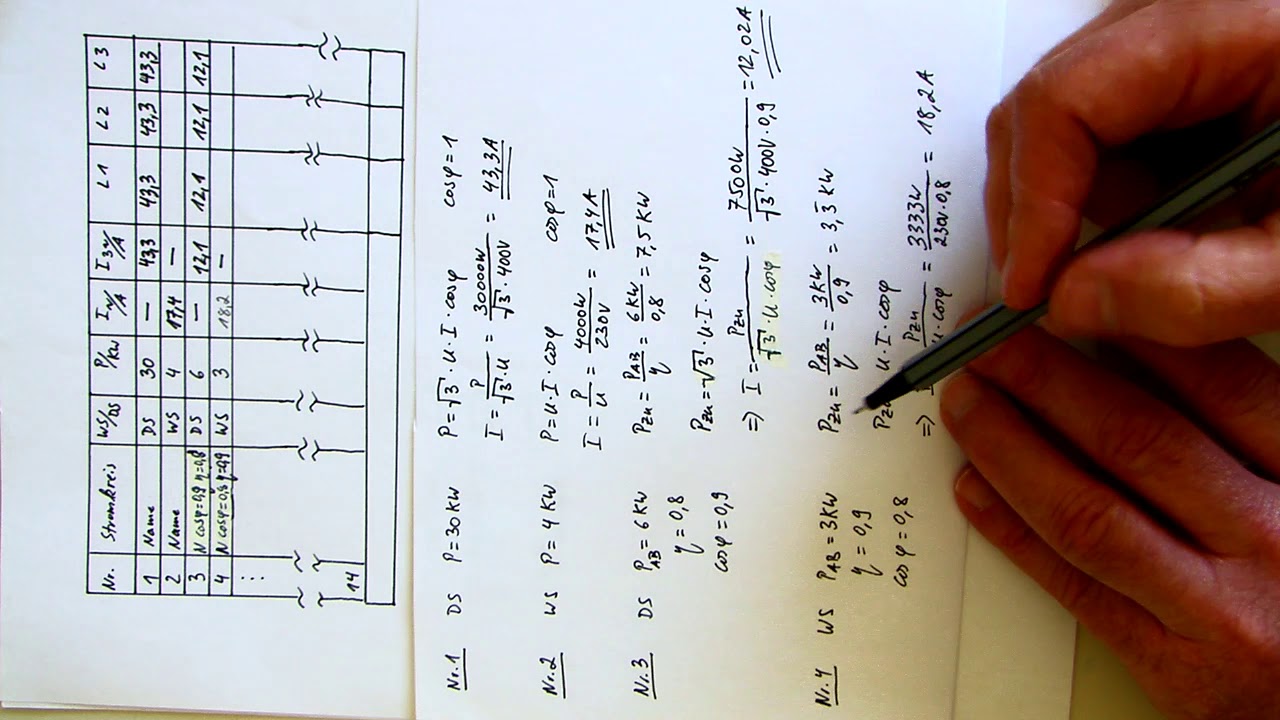 Nr. Stromkreis WS/DS P/KW I~/A I3~/A L1 L2 L3
1 Name DS 30 — 43,3 43,3 43,3 43,3
2 Name WS 4 17,4 —
3 N cosφ=0,9 η=0,8 DS 6 — 12,1 12,1 12,1 12,1
4 N cosφ=0,8 η=0,9 WS 3 18,2 —
14
Nr.1 DS P=30KW P=√3·U·I·cosφ cosφ=1
I = P/√3·U = 30000W/√3·400V = 43,3A
Nr.2 WS P=4KW P=U·I·cosφ cosφ=1
I = P/U = 4000W/230V = 17,4A
Nr.3 DS PAB=6KW Pzu = PAB/η = 6KW/0,8 = 7,5KW
η=0,8
Pzu=√3·U·I·cosφ
cosφ=0,9
=> I = Pzu/√3·U·cosφ = 7500W/√3·400V·0,9 = 12,02A
Nr.4 WS PAB=3KW Pzu = PAB/η = 3KW/0,9 = 3,3KW
η=0,9
Pzu U·I·cosφ
cosφ=0,8
=> I Pzu/U·cosφ = 3333W/230V·0,8 = 18,2A